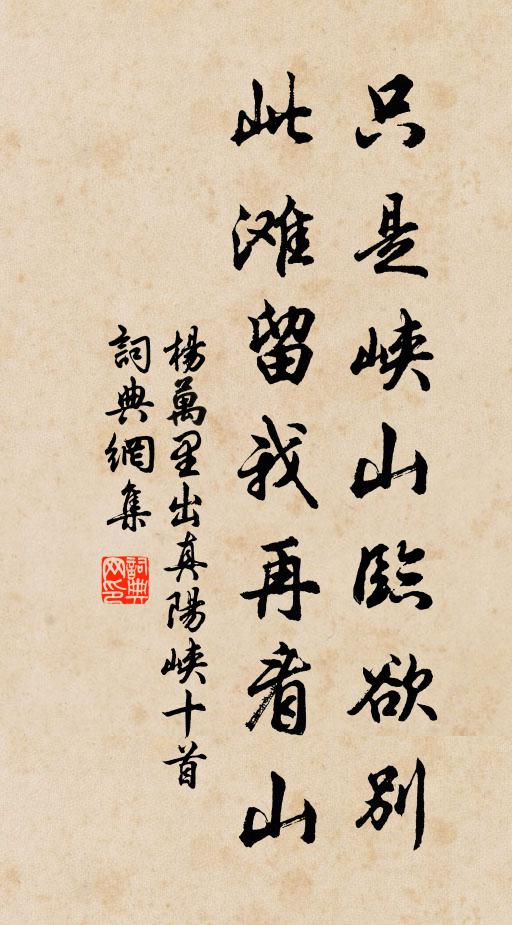 只是峽山臨欲别
此滩留我再看山
楊萬里出真陽峽十首
詞典網集
詞典網印